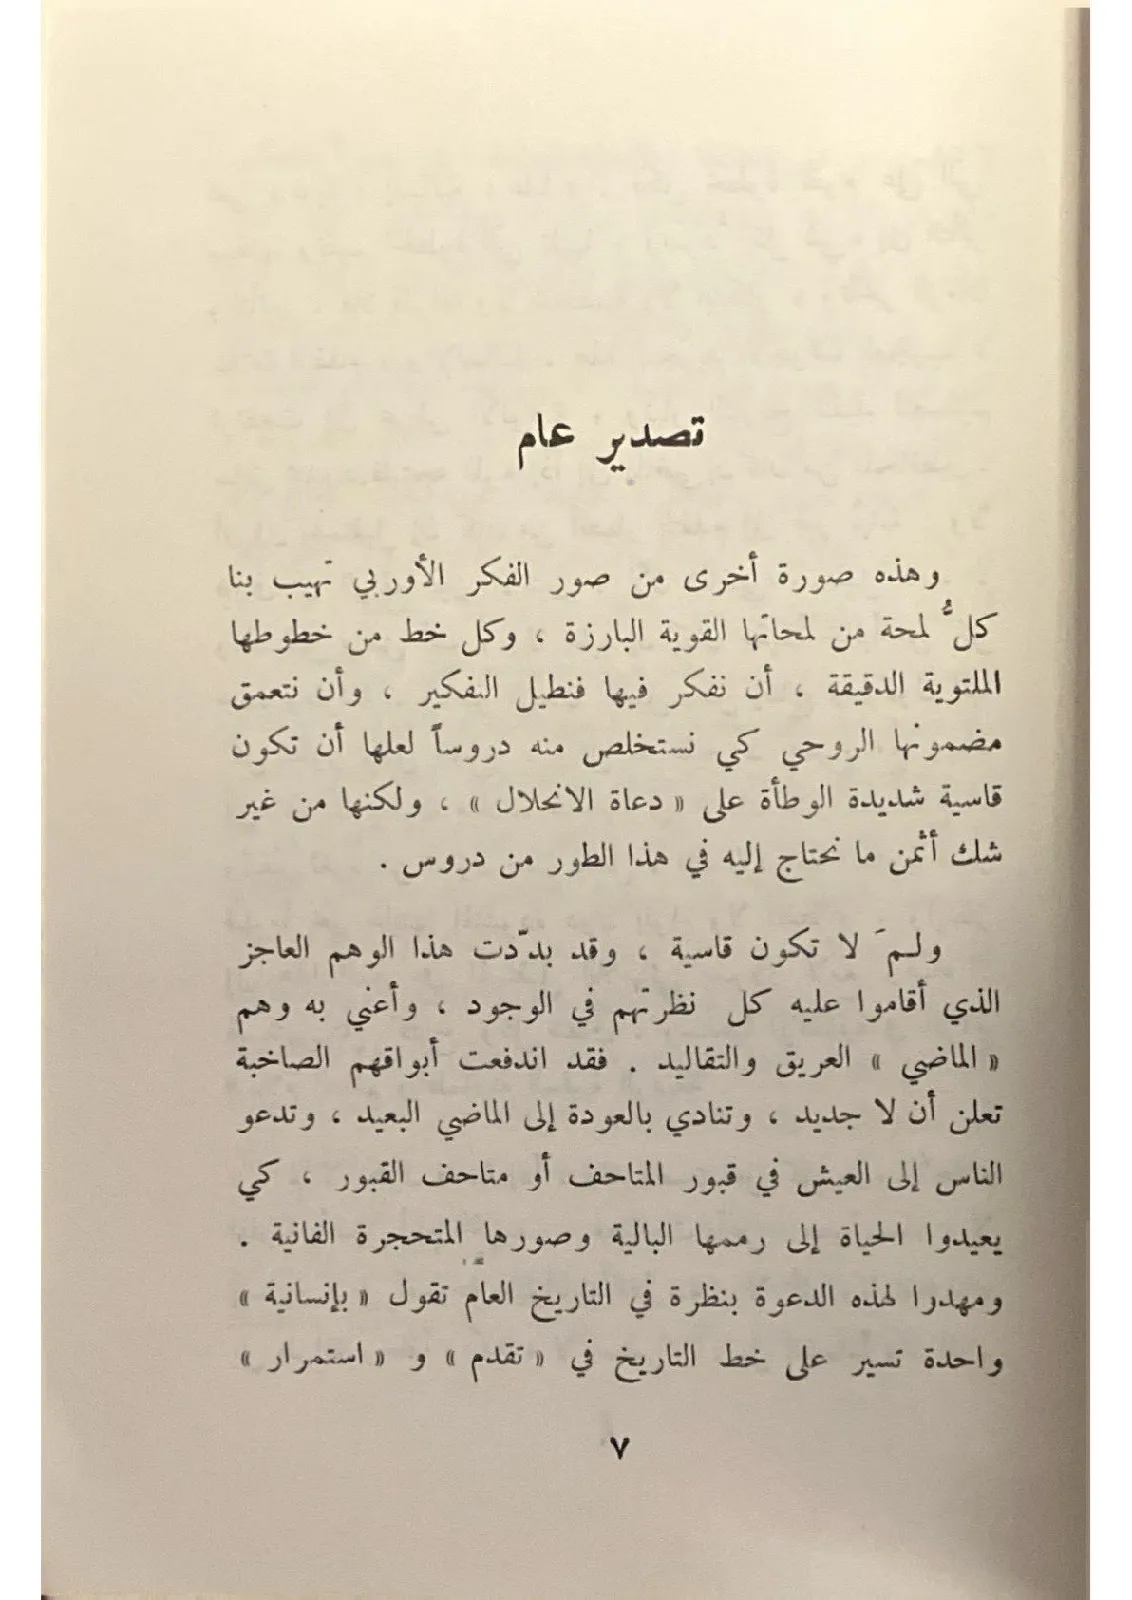 تصدير عام
وهذه صورة أخرى من صور الفكر الأوربي تهيب بنا
كلُّ لمحة من لمحاتها القوية البارزة ، وكل خط من خطوطها
الملتوية الدقيقة ، أن نفكر فيها فنطيل التفكير ، وأن نتعمق
مضمونها الروحي كي نستخلص منه دروساً لعلها أن تكون
قاسية شديدة الوطأة على « دعاة الانحلال » ، ولكنها من غير
شك أثمن ما نحتاج إليه في هذا الطور من دروس .
ولـمَ لا تكون قاسية ، وقد بدّدت هذا الوهم العاجز
الذي أقاموا عليه كل نظرتهم في الوجود ، وأعني به وهم
« الماضي » العريق والتقاليد . فقد اندفعت أبواقهم الصاخبة
تعلن أن لا جديد ، وتنادي بالعودة إلى الماضي البعيد ، وتدعو
الناس إلى العيش في قبور المتاحف أو متاحف القبور ، كي
يعيدوا الحياة إلى رممها البالية وصورها المتحجرة الفانية .
ومهدرا لهذه الدعوة بنظرة في التاريخ العامّ تقول « بإنسانية »
واحدة تسير على خط التاريخ في « تقدم » و « استمرار »
٧